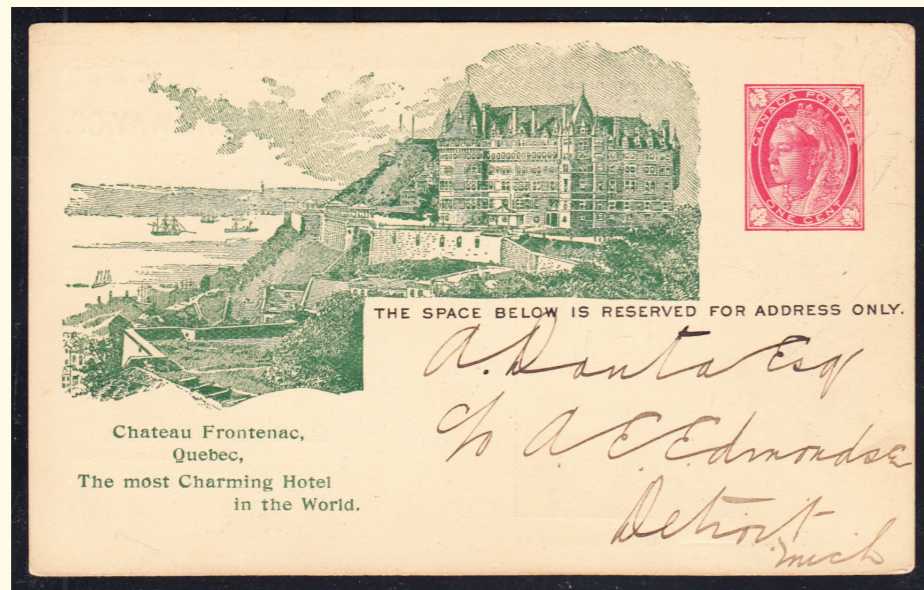 CANADA POSTAGE
ONE CENT
THE SPACE BELOW IS RESERVED FOR ADDRESS ONLY.
A. Danta Esq
c/o A. E. Edmonds
Detroit
Mich
Chateau Frontenac,
Quebec,
The most Charming Hotel
in the World.